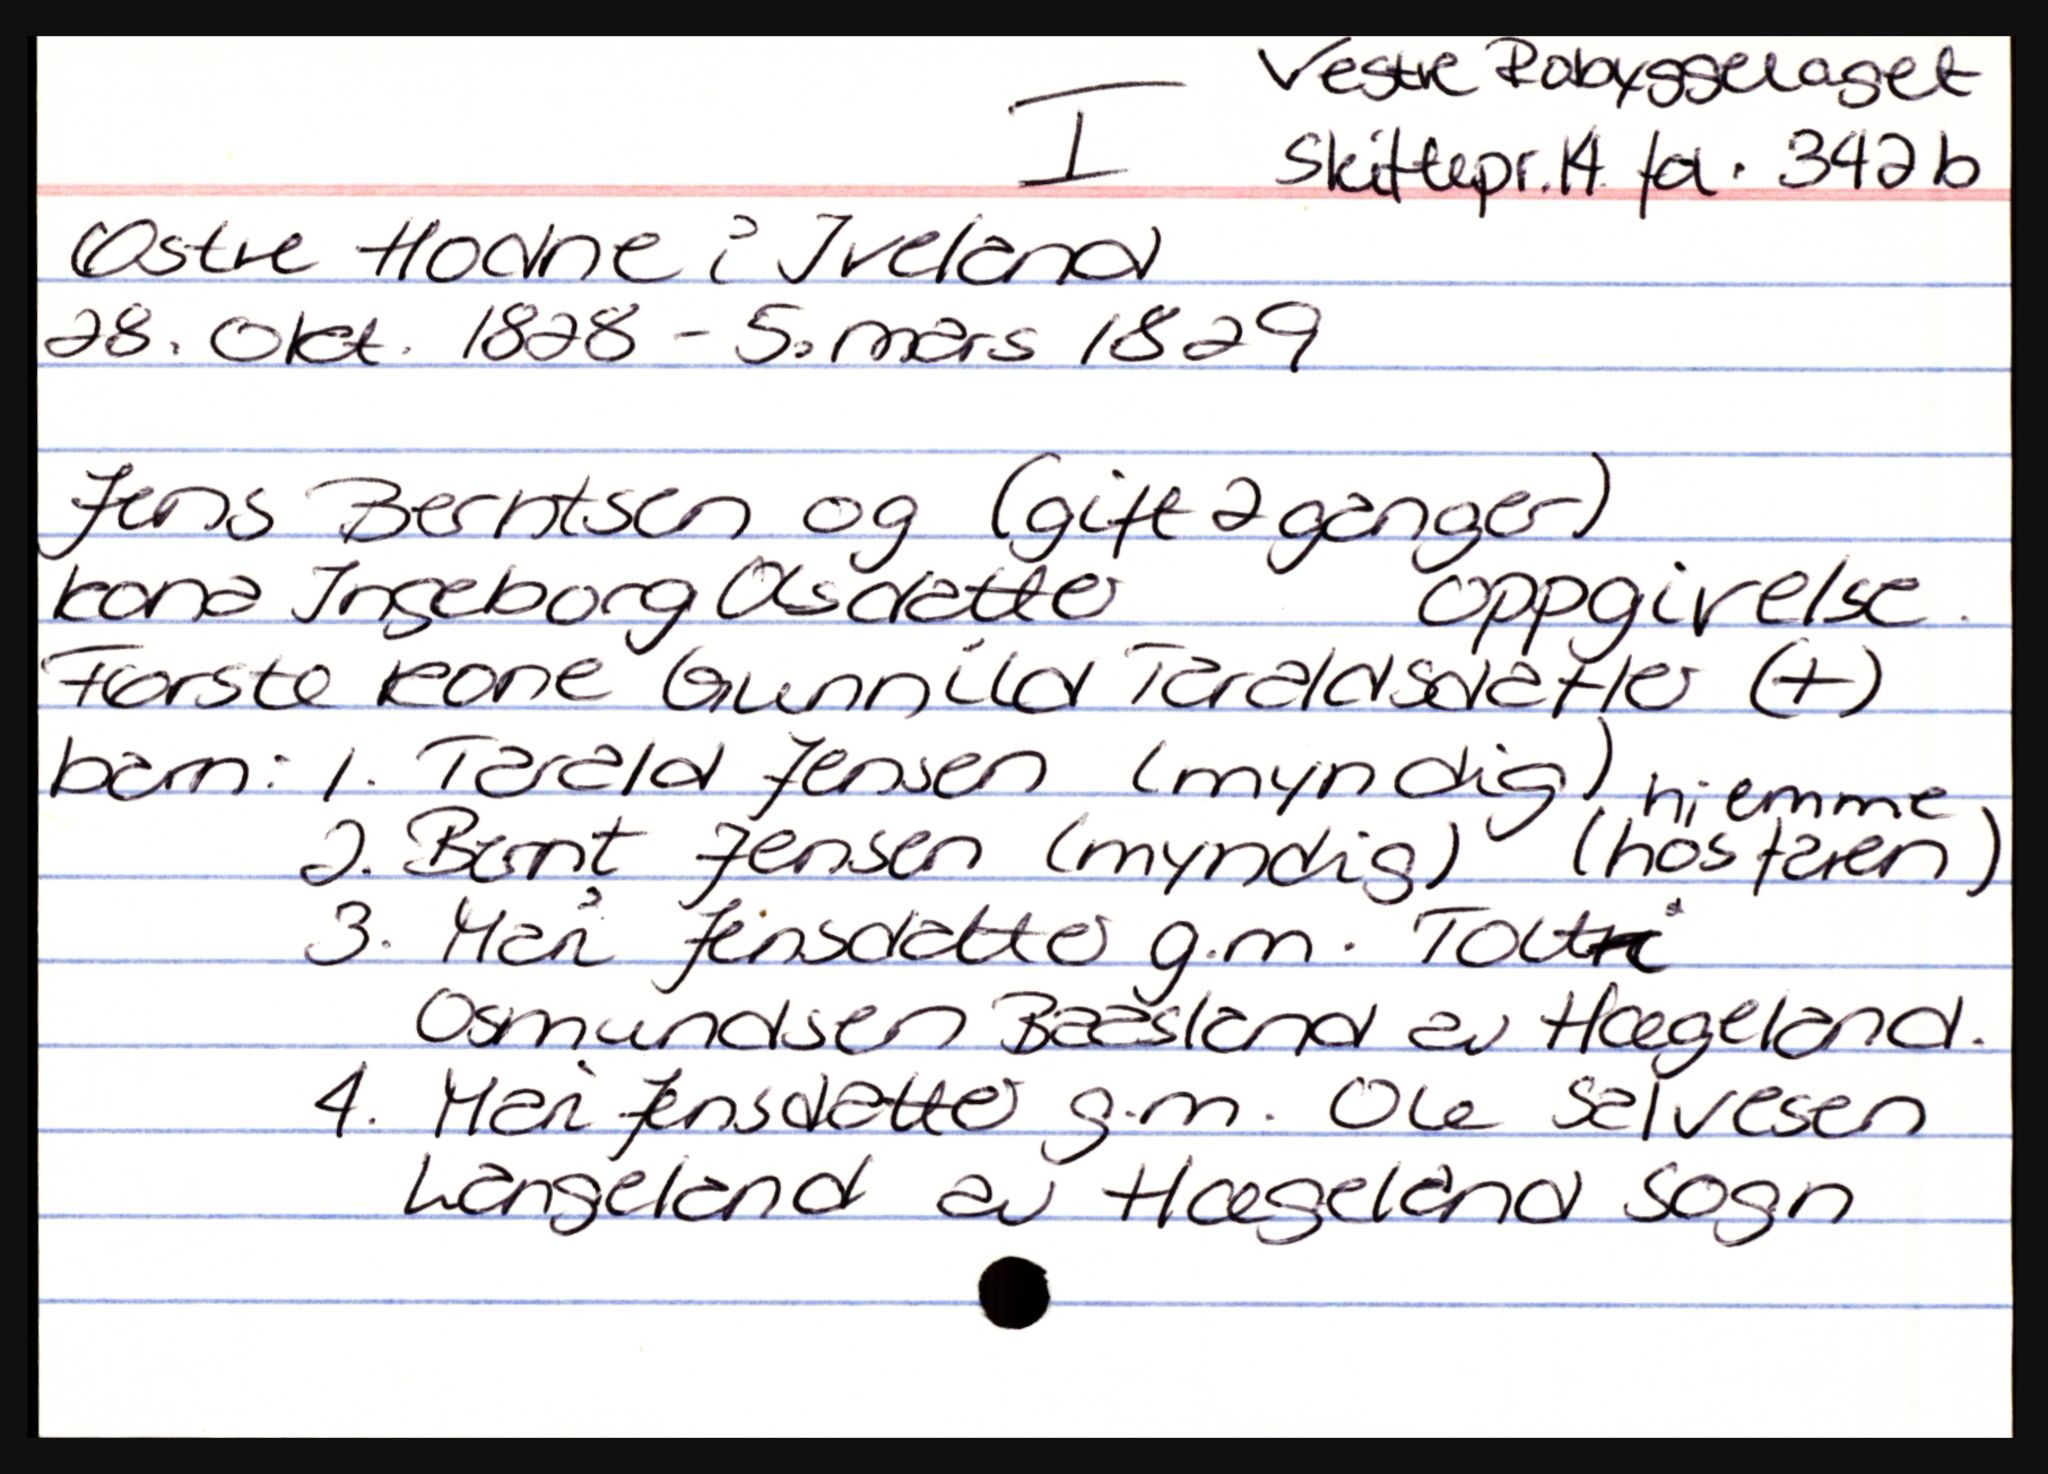 Vestre Robyggelaget
I Skiftepr. 14 fol. 342b
Østre Hodne i Iveland
28. Okt. 1828 - 5. mars 1829
Jens Berntsen og (gift 2 ganger)
kona Ingeborg Olsdatter oppgivelse.
Første kone Gunnild Taraldsdatter (+)
barn: 1. Tarald Jensen (myndig)
2. Bernt Jensen (myndig) hjemme (hos faren)
3. Mari Jensdatter g.m.
Osmundsen Baasland av Hægeland.
4. Mari Jensdatter g.m. Ole Salvesen
Langeland av Hægeland sogn